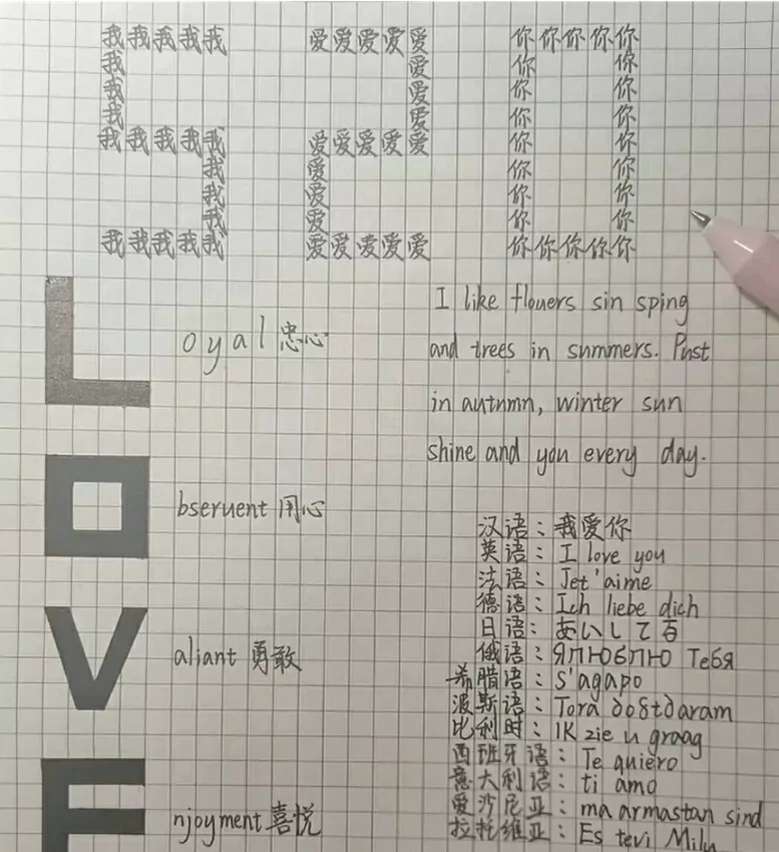 我我我我我 爱爱爱爱爱 你你你你你
我 爱 你 你
我 爱 你 你
我 爱 你 你
我我我我我 爱爱爱爱爱 你 你
我 爱 你 你
我 爱 你 你
我 爱 你 你
我我我我我 爱爱爱爱爱 你你你你你
L oyal 忠心
O bseruent 用心
V aliant 勇敢
E njoyment 喜悦
I like flouers sin sping
and trees in summers. Pust
in autnmn, winter sun
shine and you every day.
汉语：我爱你
英语：I love you
法语：Jet'aime
德语：Ich liebe dich
日语：あいしてる
俄语：Я люблю Тебя
希腊语：S'agapo
波斯语：Tora dostdaram
比利时：IK zie u graag
西班牙语：Te quiero
意大利语：ti amo
爱沙尼亚：ma armastan sind
拉托维亚：Es tevi Milu